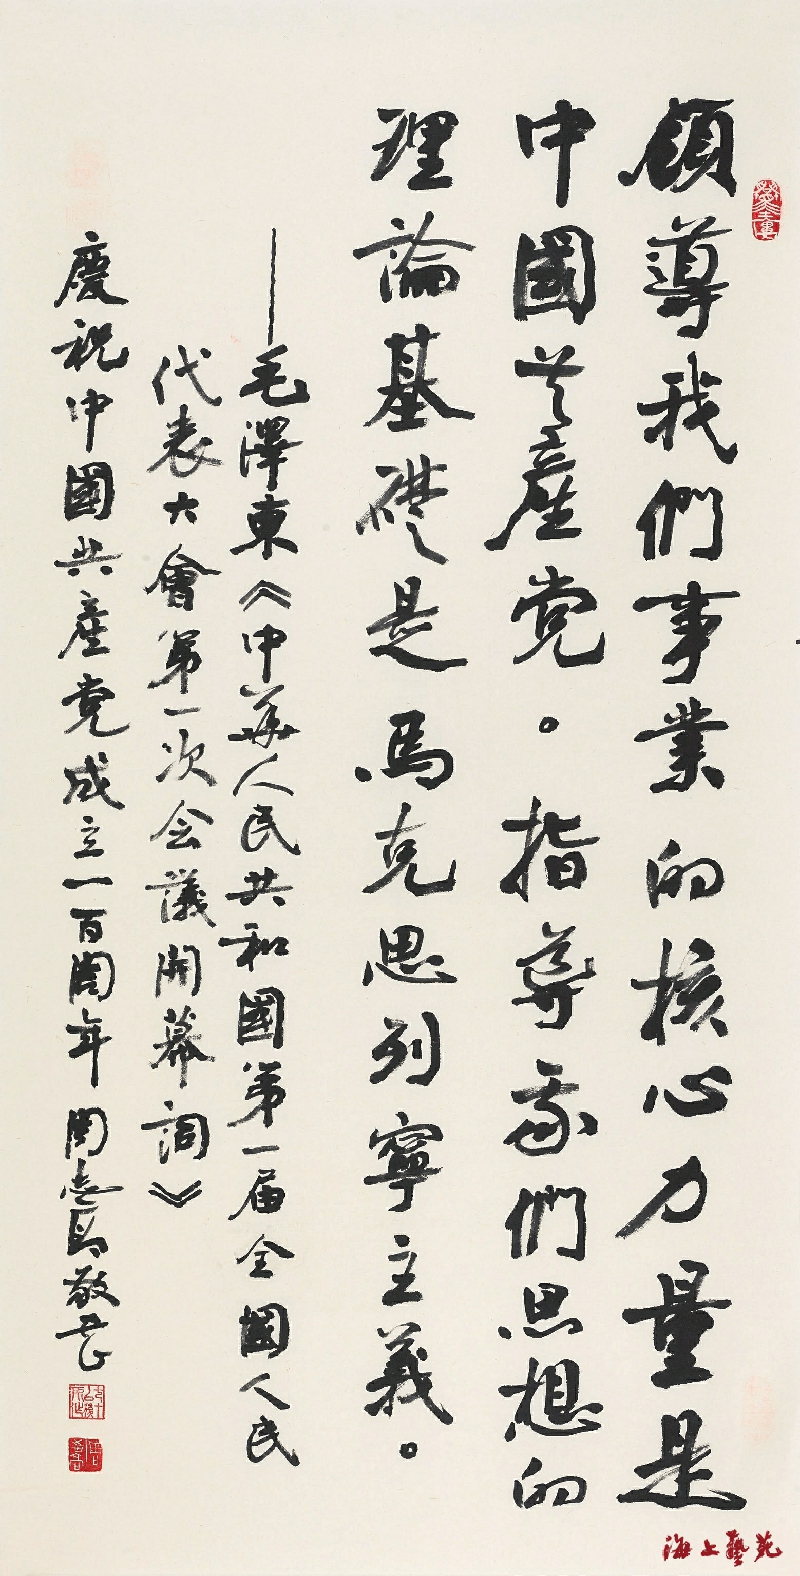 領導我們事業的核心力量是
中國共產党。指導我們思想的
理論基礎是馬克思列寧主義。
——毛澤東《中華人民共和國第一届全國人民
代表大會第一次会議開幕詞》
慶祝中國共產党成立一百周年 周志高敬书
海上藝苑